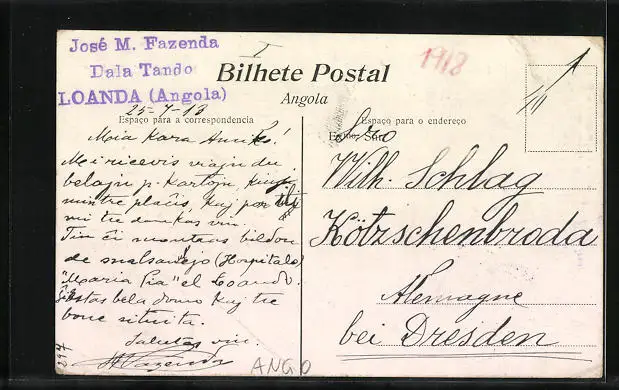 José M. Fazenda
Dala Tando
LOANDA (Angola)
1918
Bilhete Postal
Angola
Espaço para a correspondencia
Espaço para o endereço
25-7-18
Mia Kara Amiko!
Mi ricevis viajn du
belajn p. kartojn kiuj
min tre plaĉis, kaj por
mi tre dankas vin.
Tiu ĉi montras bildon
de malsanejo (Hospitalo)
"Maria Pia" el Loando.
Ĝi estas bela domo kaj tre
bone situita.
Salutas vin.
JMFazenda
297
ANGO
Wilh. Schlag
Kötzschenbroda
Alemagne
bei Dresden